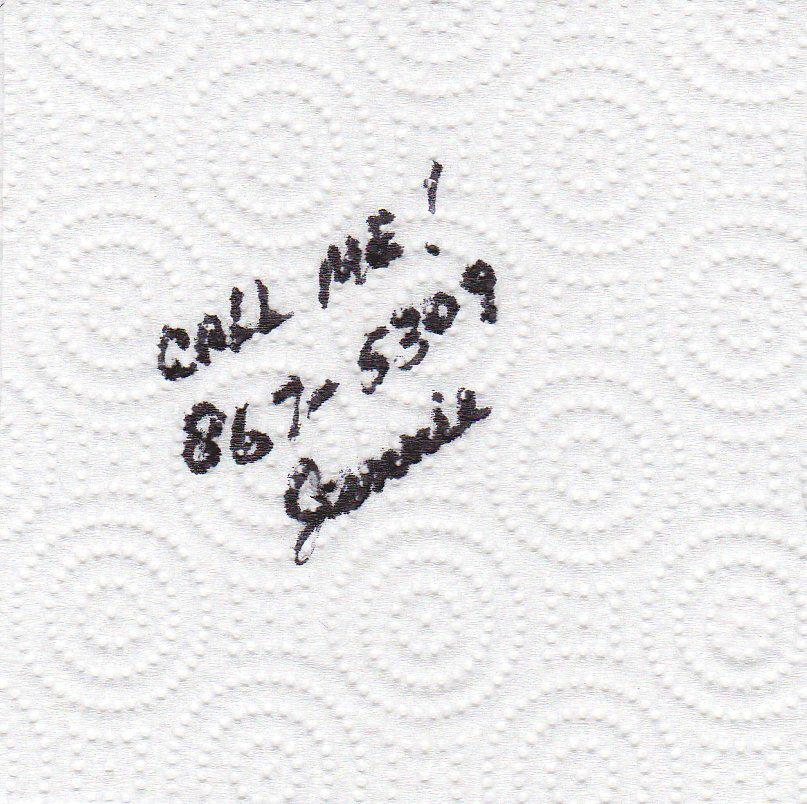 CALL ME!
867-5309
Jennie